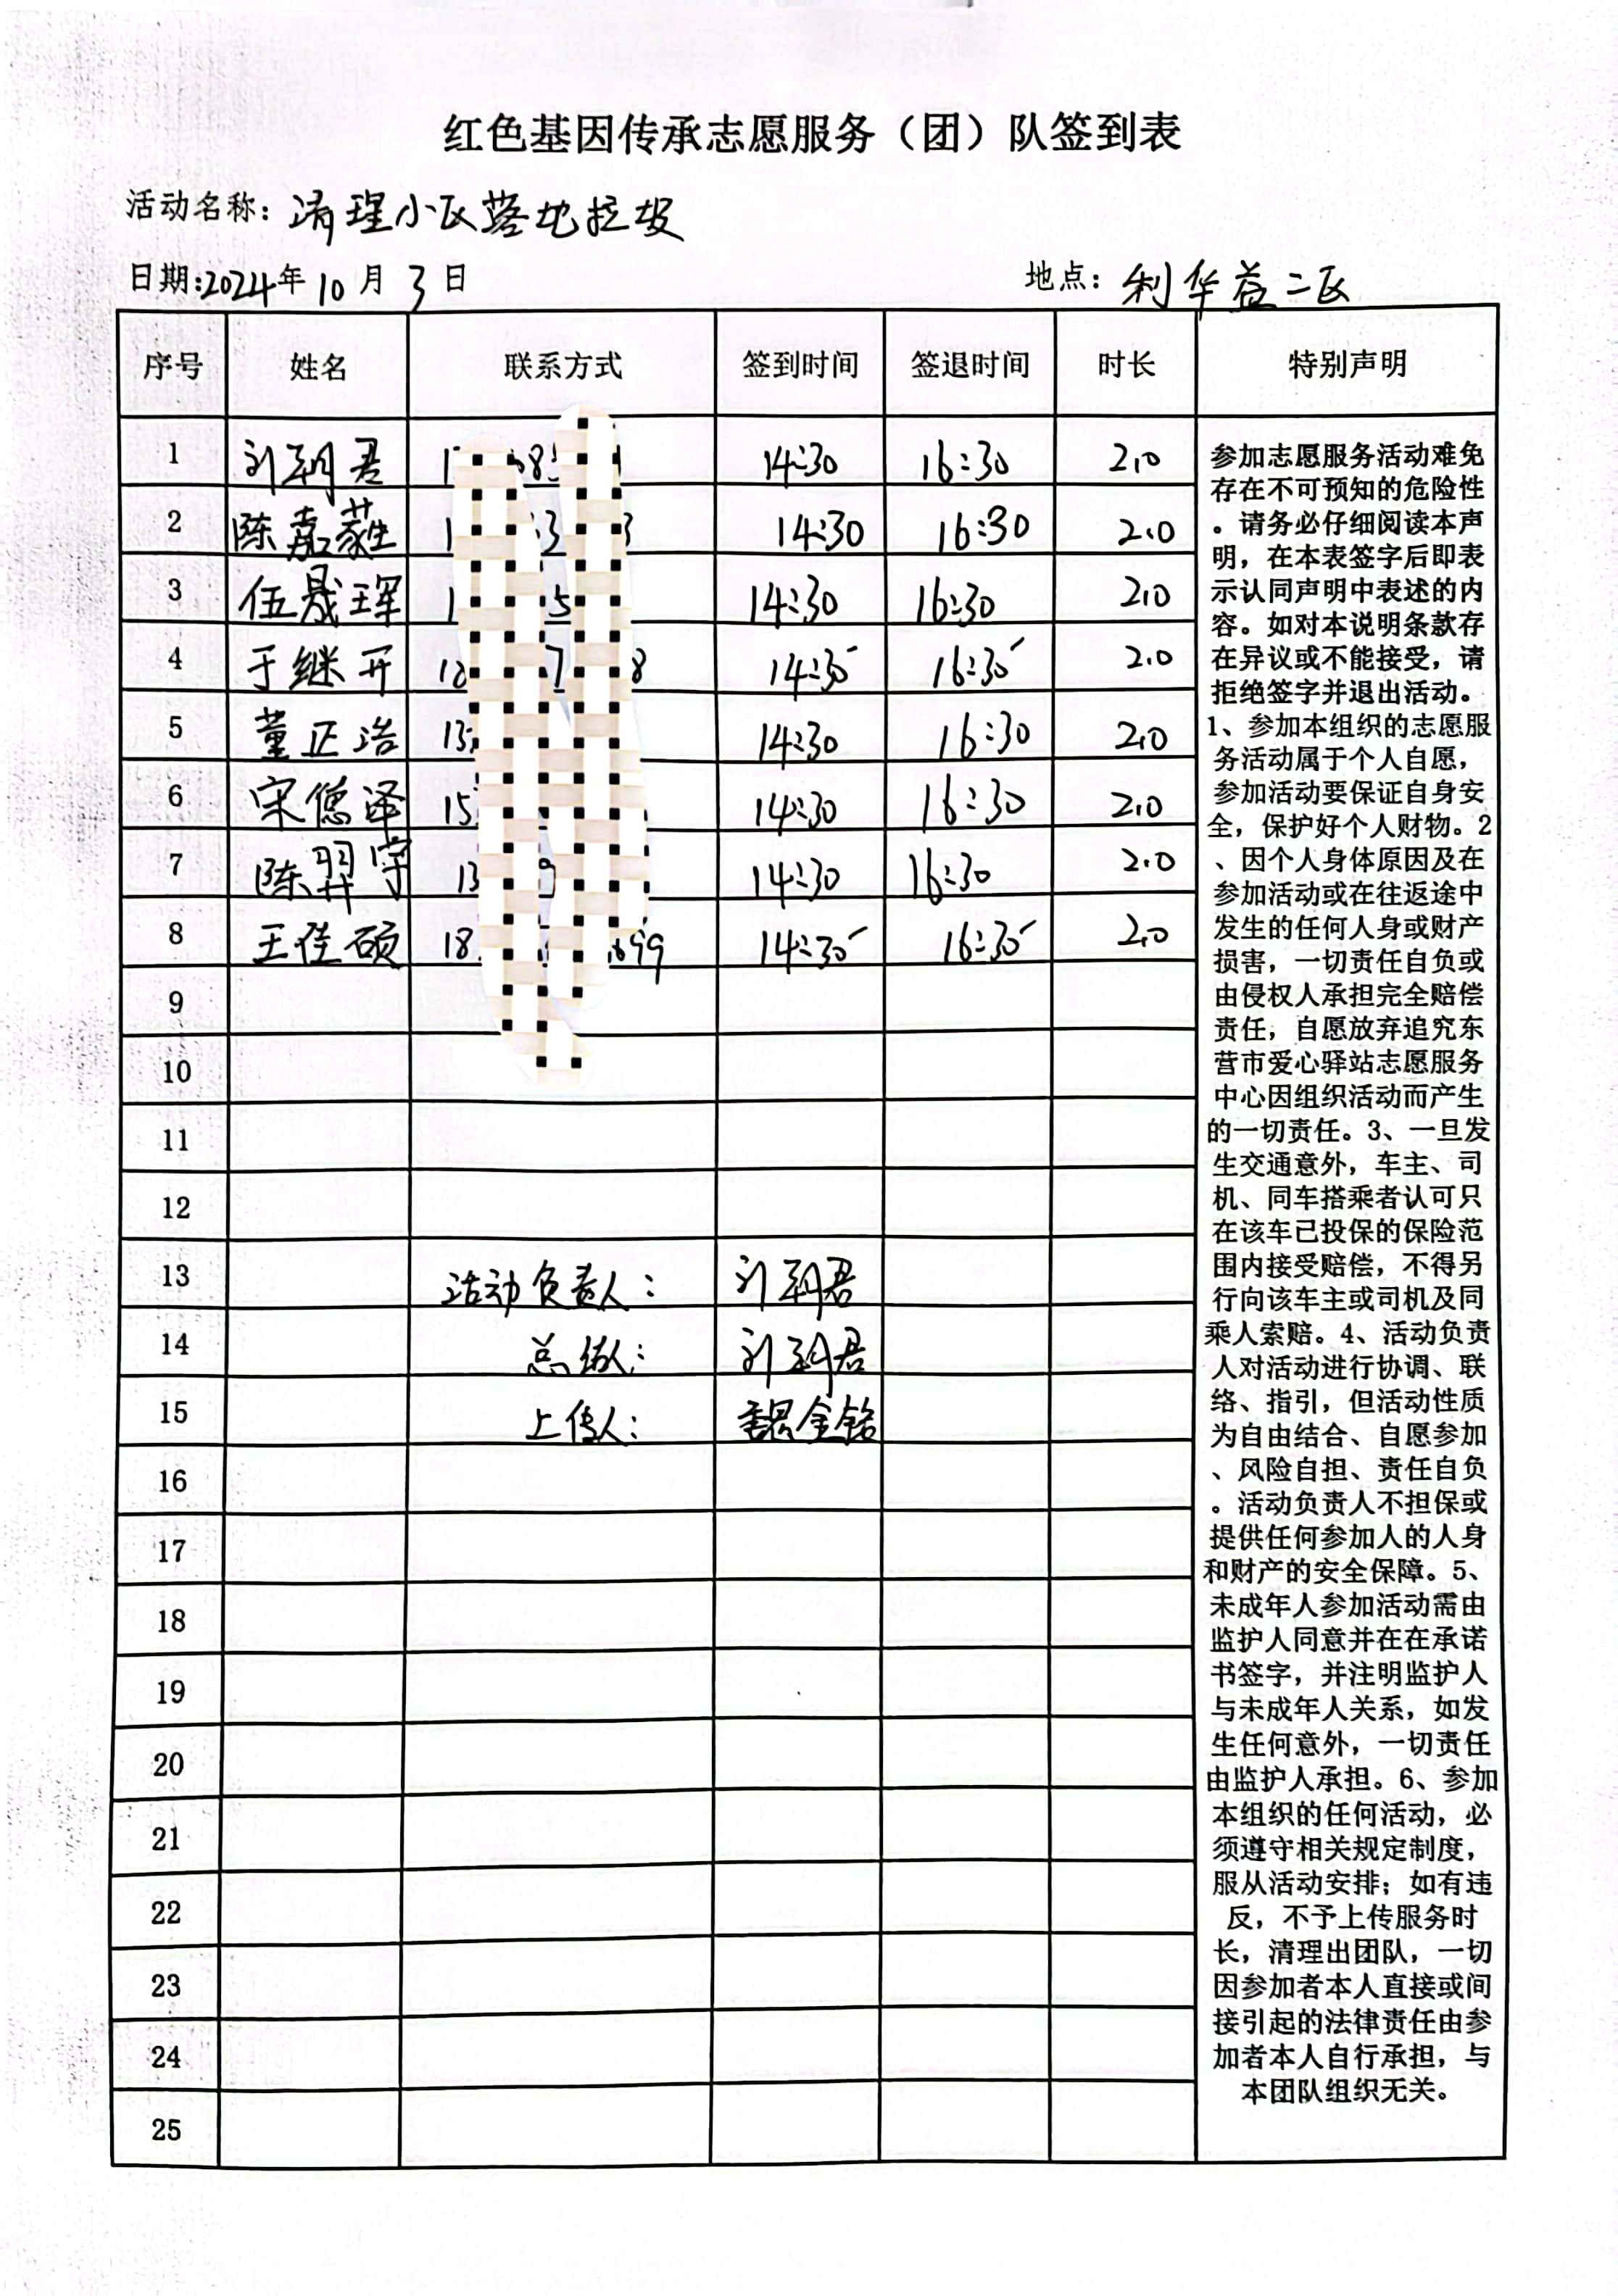 红色基因传承志愿服务（团）队签到表
活动名称：清理小区落地垃圾
日期:2024年10月3日 地点：利华益二区
序号 姓名 联系方式 签到时间 签退时间 时长 特别声明
1 14:30 16:30 2.0
2 陈嘉 14:30 16:30 2.0
3 伍晟珲 14:30 16:30 2.0
4 于继开 14:30 16:30 2.0
5 董正浩 13 14:30 16:30 2.0
6 宋偲泽 15 14:30 16:30 2.0
7 陈羿宇 13 14:30 16:30 2.0
8 王佳硕 18 699 14:30 16:30 2.0
9
10
11
12
13 活动负责人：
14 总结人：
15 上传人： 魏金铭
16
17
18
19
20
21
22
23
24
25
参加志愿服务活动难免
存在不可预知的危险性
。请务必仔细阅读本声
明，在本表签字后即表
示认同声明中表述的内
容。如对本说明条款存
在异议或不能接受，请
拒绝签字并退出活动。
1、参加本组织的志愿服
务活动属于个人自愿，
参加活动要保证自身安
全，保护好个人财物。2
、因个人身体原因及在
参加活动或在往返途中
发生的任何人身或财产
损害，一切责任自负或
由侵权人承担完全赔偿
责任，自愿放弃追究东
营市爱心驿站志愿服务
中心因组织活动而产生
的一切责任。3、一旦发
生交通意外，车主、司
机、同车搭乘者认可只
在该车已投保的保险范
围内接受赔偿，不得另
行向该车主或司机及同
乘人索赔。4、活动负责
人对活动进行协调、联
络、指引，但活动性质
为自由结合、自愿参加
、风险自担、责任自负
。活动负责人不担保或
提供任何参加人的人身
和财产的安全保障。5、
未成年人参加活动需由
监护人同意并在在承诺
书签字，并注明监护人
与未成年人关系，如发
生任何意外，一切责任
由监护人承担。6、参加
本组织的任何活动，必
须遵守相关规定制度，
服从活动安排；如有违
反，不予上传服务时
长，清理出团队，一切
因参加者本人直接或间
接引起的法律责任由参
加者本人自行承担，与
本团队组织无关。